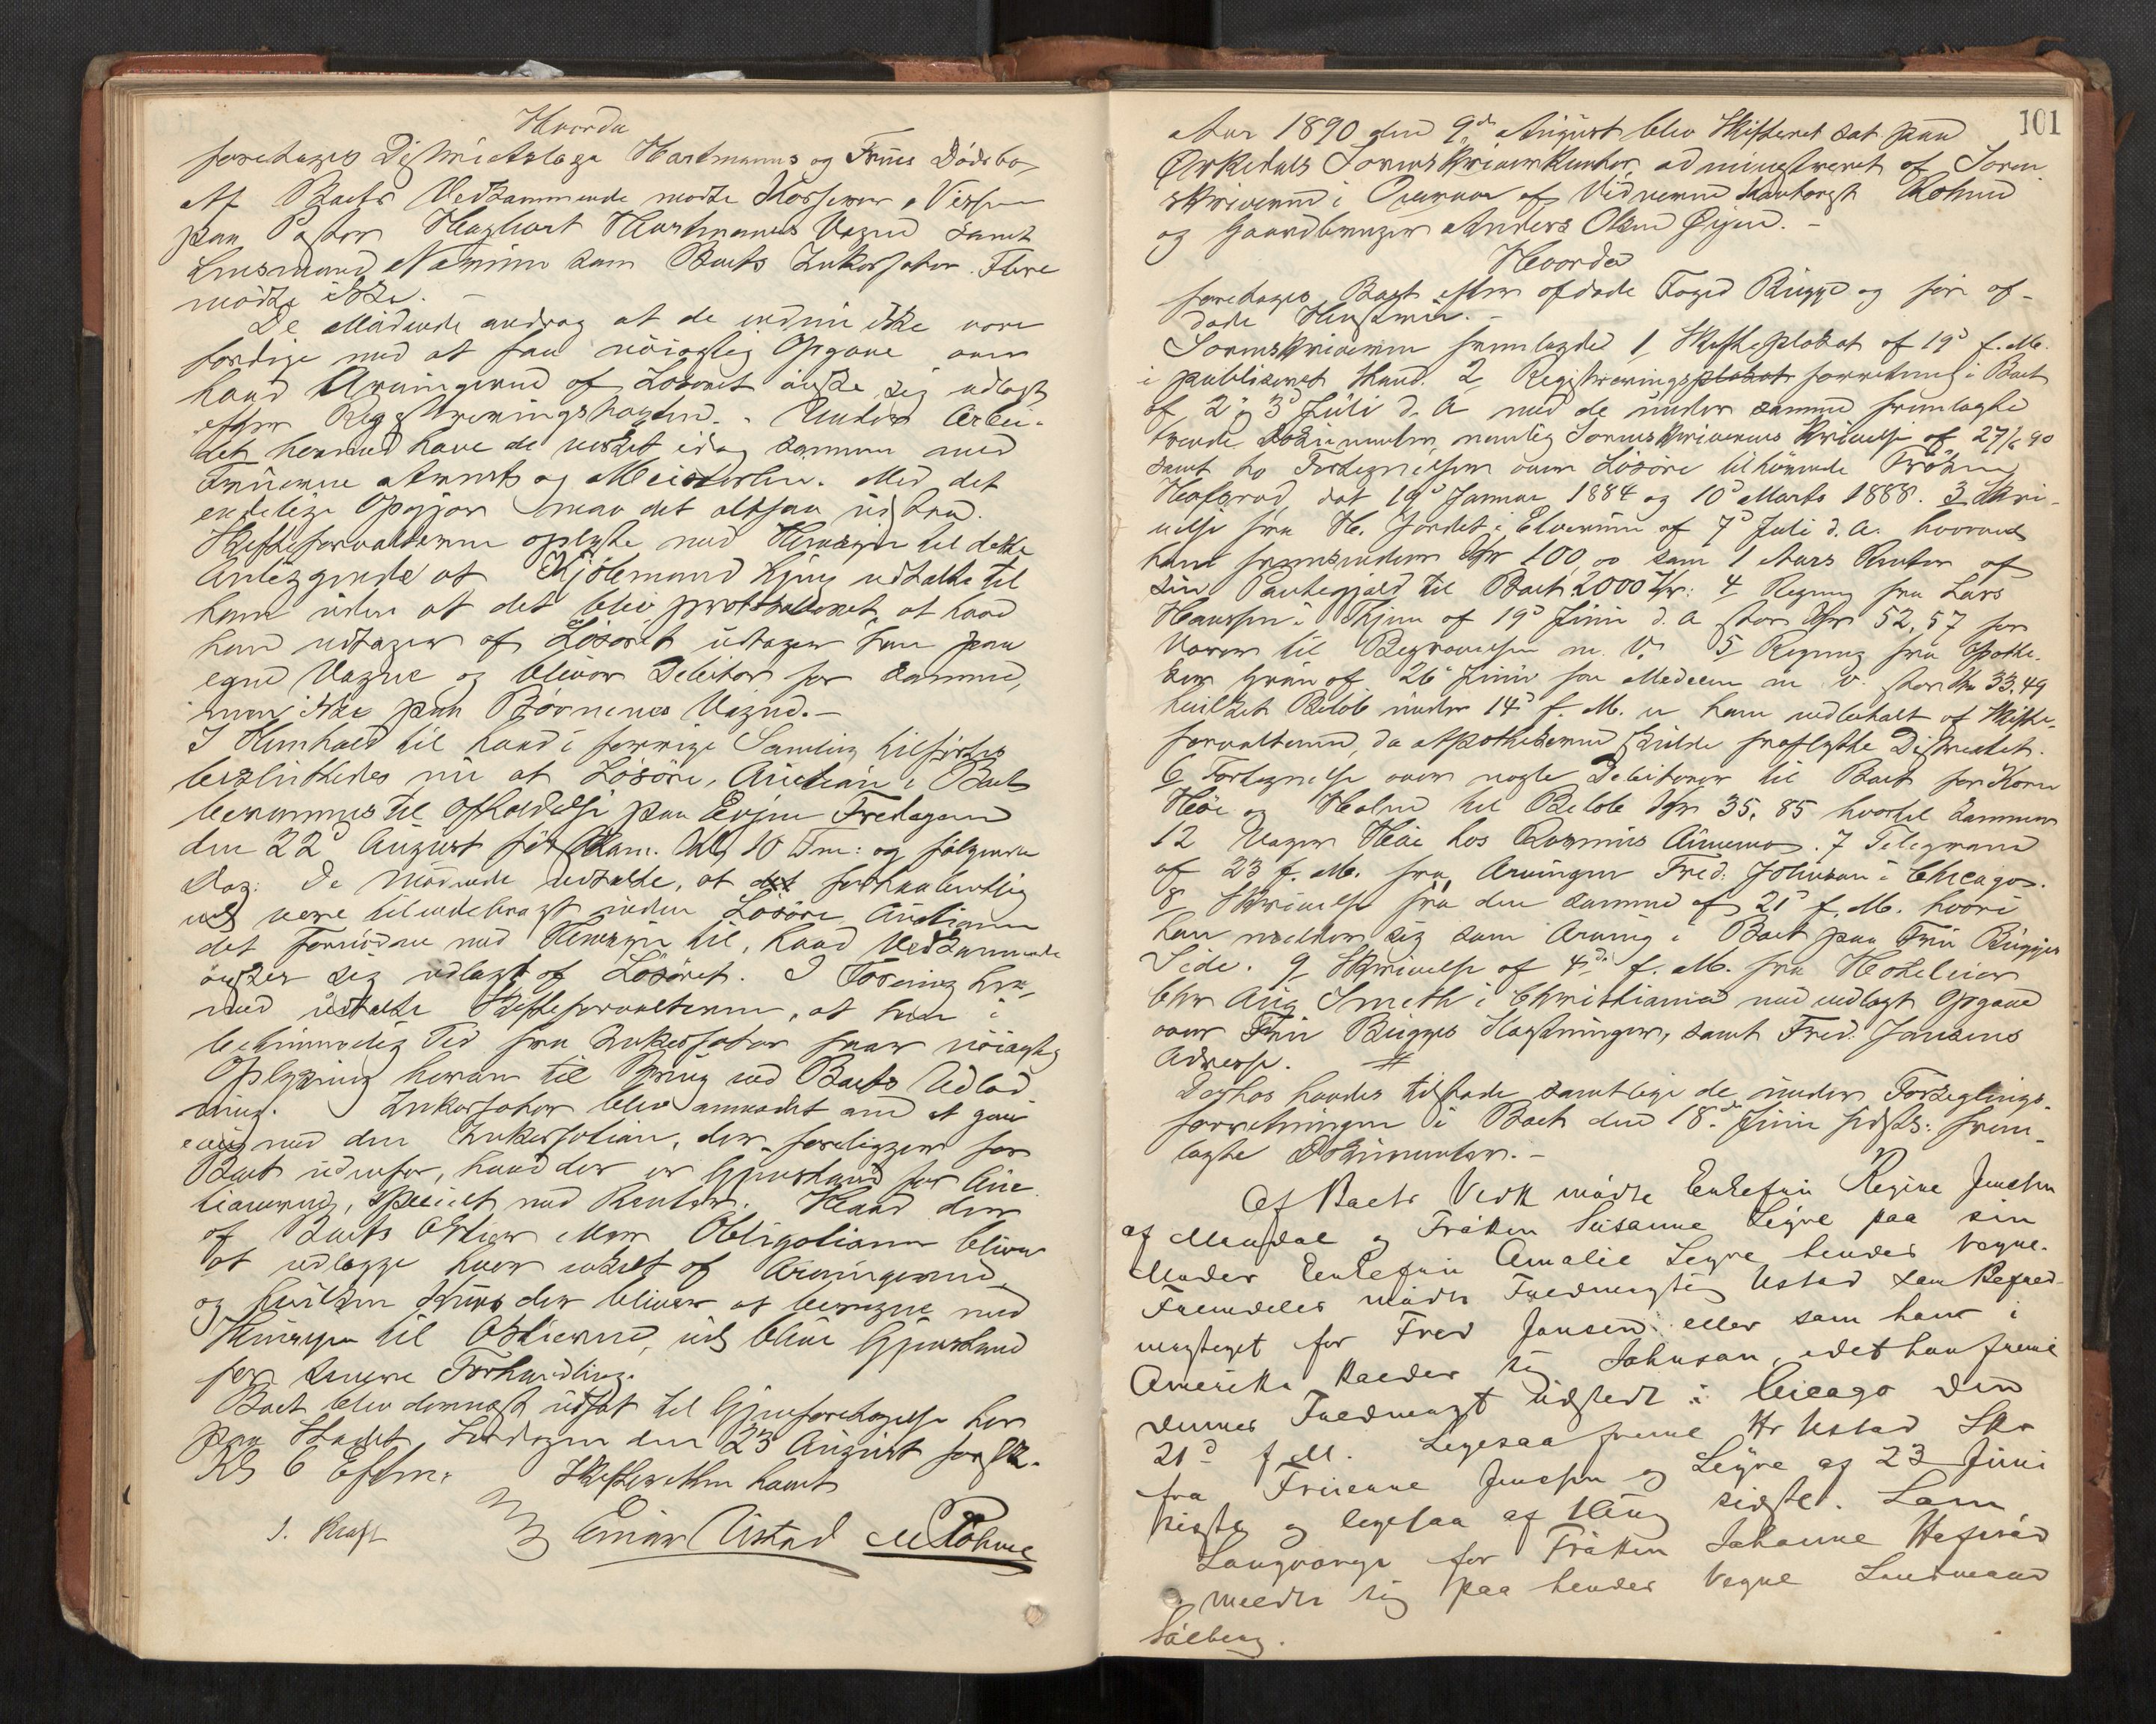 Hvorda
foretages Distriktslæge Hartmanns og Frues Dödsbo,
Af Boets Vedkommende mödte Kasserer Nissen
paa Pastor Hagbart Hartmanns Vegne samt
Lensmand som Boets Inkassator. Flere
mödte ikke. –
De Mödende androg at de endnu ikke vare
færdige med at faa nöiagtig Opgave over
hvad Arvingerne af Lösöret önske sig udlagt
efter Registreringstaxten. Under Arbei-
det hermed have de været idag sammen med
Fruerne og . Med det
endelige Opgjör maa det altsaa udstaa.
Skifteforvalteren oplyste med Hensyn til dette
Anliggende at udtalte til
ham uden at det blev protokolleret, at hvad
han udtager af Lösöret udtager han paa
egne Vegne og bliver Debitor for samme,
men ikke paa Börnenes Vegne. –
I Henhold til hvad i forrige Samling tilförtes
besluttedes nu at Lösöre Auction i Boet
berammes til Afholdelse paa Evjen Fredagen
den 22d August förstkom. Kl 10 Fm: og fölgende
Dag: De Mödende udtalte, at det forhaabentlig
vil være tilendebragt inden Lösöre Auctionen
det Fornödne med Hensyn til, hvad Vedkommende
önsker sig udlagt af Lösöret. I Forening her-
med udtalte Skifteforvalteren, at han i
betimelig Tid fra Inkassator faar nöiagtig
Oplysning herom til Brug ved Boets Udlod-
ning. Inkassator blev anmodet om at gaa
igang med den Inkassation, der foreligger for
Boet udenfor, hvad der er Gjenstand for Auc-
tionering, specielt med Renter. Hvad der
af Boets Aktier eller Obligationer bliver
at udlægge hver enkelt af Arvingerne,
og hvilken Kurs der bliver at beregne med
Hensyn til Aktierne, vil blive Gjenstand
for senere Forhandling.
Boet blev dernæst udsat til Gjenforetagelse her
paa Stedet Lördagen den 23 August förstk.
Kl 6 Efterm. Skifteretten hævet
J. Kraft Einar Ustad M Rohme
101
Aar 1890 den 9de August blev Skifteret sat paa
Örkedals Sorenskriverkontor, administreret af Soren-
skriveren i Overvær af Vidnerne Rohme
og Gaardbruger Anders Olsen Öyen. –
Hvorda
foretages Boet efter afdöde Foged Bugge og för af-
döde Hustru. –
Sorenskriveren fremlagde 1, Skifteplakat af 19d f.M.
i publiceret Stand. 2, Registreringsplakat forretning i Boet
af 2 og 3d Juli d. A med de under samme fremlagte
tvende Dokumenter, nemlig Sorenskriverens Skrivelse af 27/6 90
samt to Fortegnelser over Lösöre tilhörende Fröken
Hafsrød, dat 19d Januar 1884 og 10d Marts 1888. 3 Skri-
velse fra H. Jordet i Elverum af 7d Juli d. A. hvorved
han fremsender Kr 100,00 som 1 Aars Renter af
sin Pantegjæld til Boet 2000 Kr: 4 Regning fra Lars
Hanssen i af 19d Juni d. A stor Kr 52,57 for
Varer til Begravelsen m. V. 5, Regning fra Apothe-
ker Grün af 26 Juni for Medicin m v. stor Kr 33.49
hvilket Belöb under 14d f. M. er ham udbetalt af Skifte-
forvalteren, da Apothekeren skulde fraflytte Distriktet.
6 Fortegnelse over nogle Debitorer til Boet for Korn
Höi og Halm til Belöb Kr 35,85 hvortil kommer
12 Höi hos Rasmus . 7 Telegram
af 23 f. M. fra Arvingen Fred. Johnson i Chicago.
8, Skrivelse fra den samme af 21d f. M. hvori
han melder sig som Arving i Boet paa Fru Bugges
Side. 9 Skrivelse af 4de f. M. fra Hotelier
Chr Aug Smith i Christiania med vedlagt Opgave
over Fru Bugges Slægtninger, samt Fred. Jansens
Adresse. #
Derhos havdes tilstede samtlige de under Forseglings-
forretningen i Boet den 18de Juni sidstl. frem-
lagte Dokumenter. –
Af Boets Vedk mödte Enkefru Regine Jenssen
af Meldal og Fröken Susanne Leyre paa sin
Moder Enkefru Amalie Leyre hendes Vegne.
Fremdeles mödte Fuldmægtig Ustad som Befuld-
mægtiget for Fred Jansen eller som han i
Amerika kalder sig Johnson, idet han fremla
dennes Fuldmagt udstedt i Chicago den
21d f M. Ligesaa fremla Hr Ustad Skr
fra Fruerne Jenssen og Leyre af 23 Juni
sidstl og ligesaa af 11 Aug sidstl. Som
Laugværge for Fröken Johanne Hafsrød
meldte sig paa hendes Vegne Lensmand
Solberg.